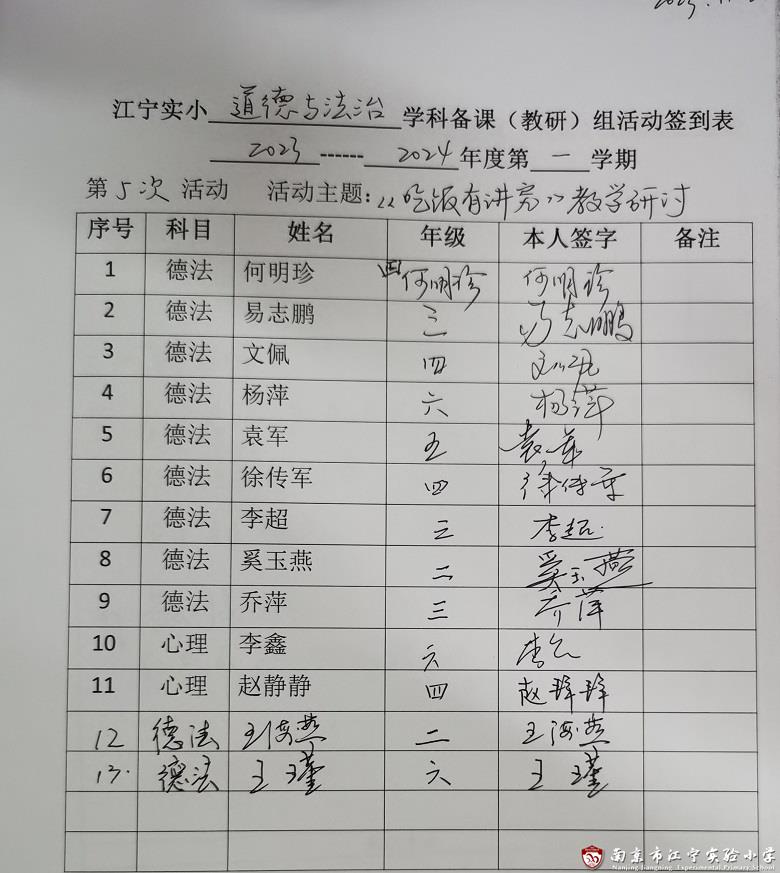 2023.11.
江宁实小 道德与法治 学科备课（教研）组活动签到表
2023 ------ 2024 年度第 一 学期
第5次 活动 活动主题：“吃饭有讲究”教学研讨
序号 科目 姓名 年级 本人签字 备注
1 德法 何明珍 四 何明珍 何明珍
2 德法 易志鹏 三 易志鹏
3 德法 文佩 四 文佩
4 德法 杨萍 六 杨萍
5 德法 袁军 五 袁军
6 德法 徐传军 四 徐传军
7 德法 李超 三 李超
8 德法 奚玉燕 二 奚玉燕
9 德法 乔萍 三 乔萍
10 心理 李鑫 六 李鑫
11 心理 赵静静 四 赵静静
12 德法 王海燕 二 王海燕
13. 德法 王瑾 六 王瑾
南京市江宁实验小学
Nanjing Jiangning Experimental Primary School